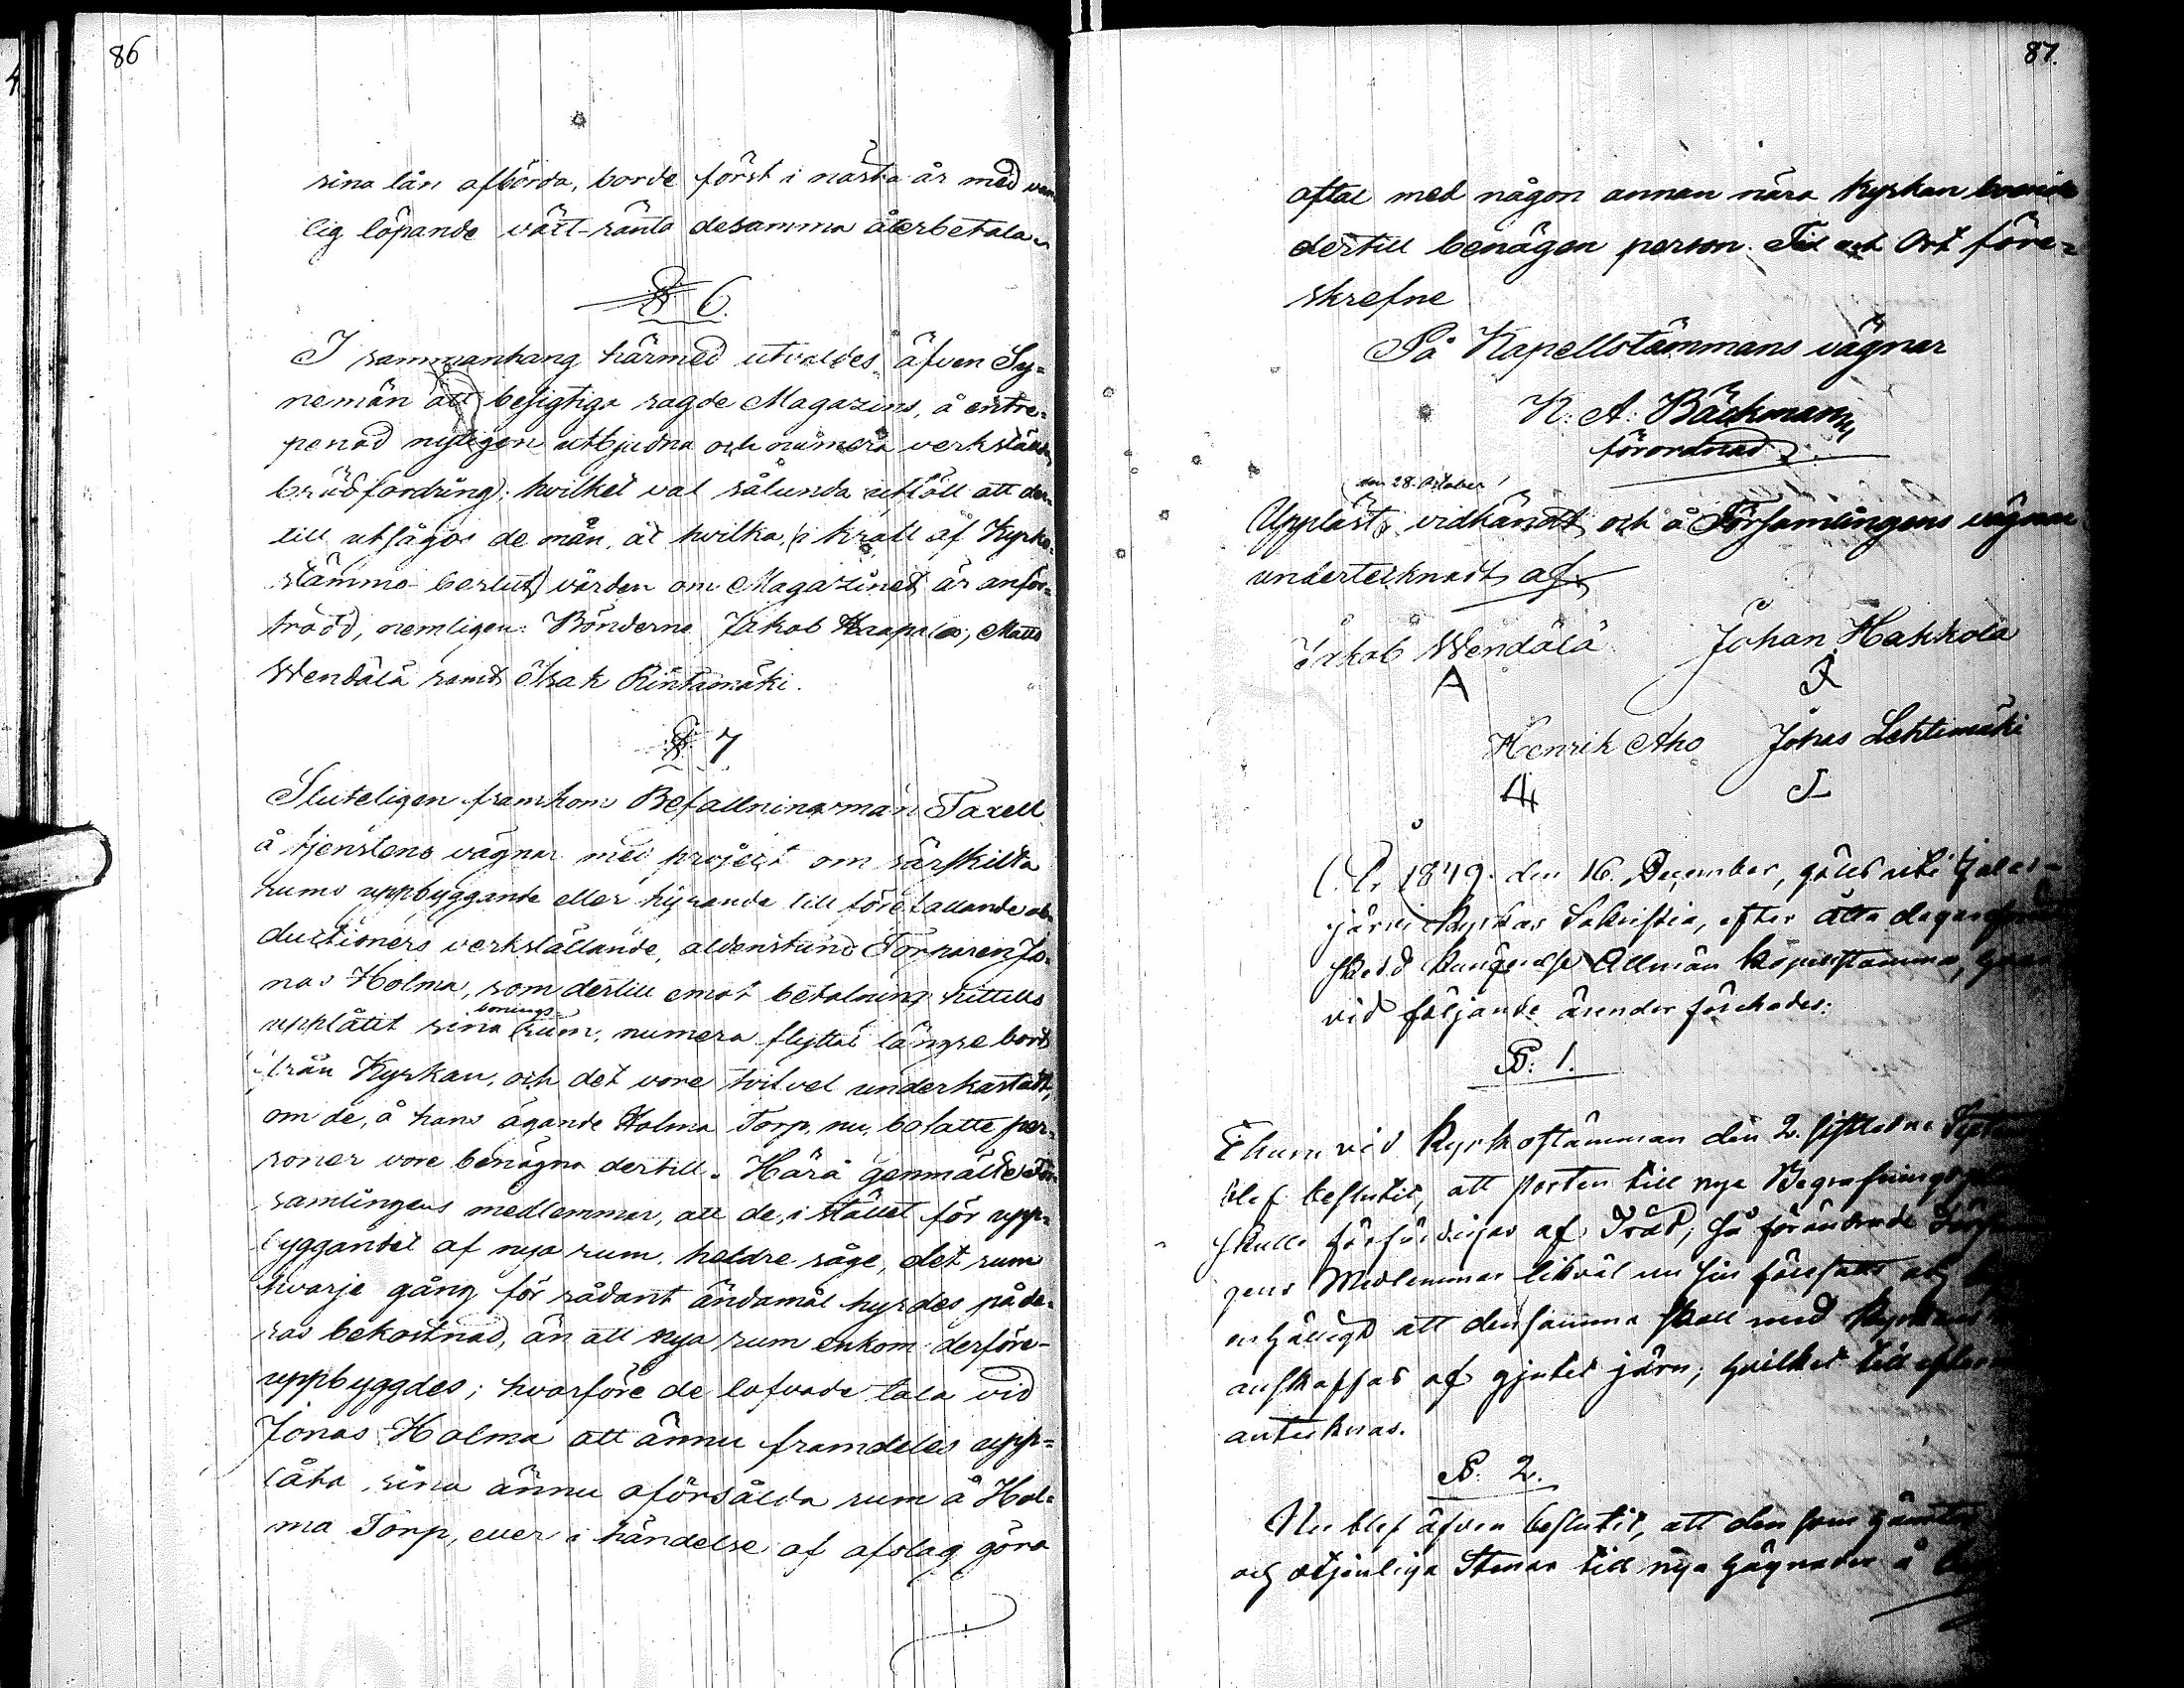 86
sina lån afbörda, borde först i nästa år med van
lig löpande vårt-ränta desamma återbetala.
§ 6.
I sammanhang härmed utvaldes äfven Sy=
nemän att besigtiga sagde Magazins, å entre=
penad nyligen utbjudna och numera verkställda
brädfordring; hvilket val sålunda utföll att der=
till utsågos de män, åt hvilka, i kraft af Kyrko=
stämmo-beslut, vården om Magazinet är anför=
trodd, nemligen: Bönderne Jakob Haapala, Matts
Wendälä samt Isak Rintamäki.
§ 7
Sluteligen framkom Befallningsman Taxell
å tjenstens vägnar med project om särskilta
rums uppbyggande eller hyrande till förefallande ob=
ductioners verkställande, aldenstund Torparen Jo=
nas Holma, som dertill emot betalning hittills
upplåtit sina bonings- rum, numera flyttat längre bort
ifrån Kyrkan, och det vore tvifvel underkastadt,
om de, å hans ägande Holma Torp, nu, bosatte per=
soner vore benägna dertill. Härå genmälte För=
samlingens medlemmar, att de, i stället för upp=
byggandet af nya rum, heldre såge, det rum
hvarje gång för sådant ändamål hyrdes på de=
ras bekostnad, än att nya rum enkom derföre-
uppbyggdes; hvarföre de lofvade tala vid
Jonas Holma att ännu framdeles upp=
låta sina ännu oförsålda rum å Hol=
ma Torp, eller i händelse af afslag göra
87.
aftal med någon annan nära Kyrkan boende
dertill benägen person. Tid och Ort före=
skrefne
På Kapellstämmans vägnar
K: A: Bäckman
förordnad
den 28. October
Uppläst, vidkändt och å Församlingens vägnar
undertecknadt af
Jakob Wendälä Johan Hakkola
A
Henrik Aho Johas Lehtimäki
1849. den 16. December, hölls uti
järvi Kyrkas Sakristia, efter åtta dagar
skedd kungörelse Allmän Kapellstämma, hvar
vid följande ärender förehades:
§. 1.
Ehuru vid Kyrkostämman den 2. sistledne Septem
blef beslutit, att porten till nya Begrafnings
skulle förfärdigas af Träd; så förändrade Försam
gens Medlemmar likväl nu sin föresats och
enhälligt att densamma skall med Kyrkans
anskaffas af gjutet järn; hvilket till efter
antecknas.
§. 2.
Nu blef äfven beslutit, att den som hämtar
och otjenliga Stenar till nya hägnaden å